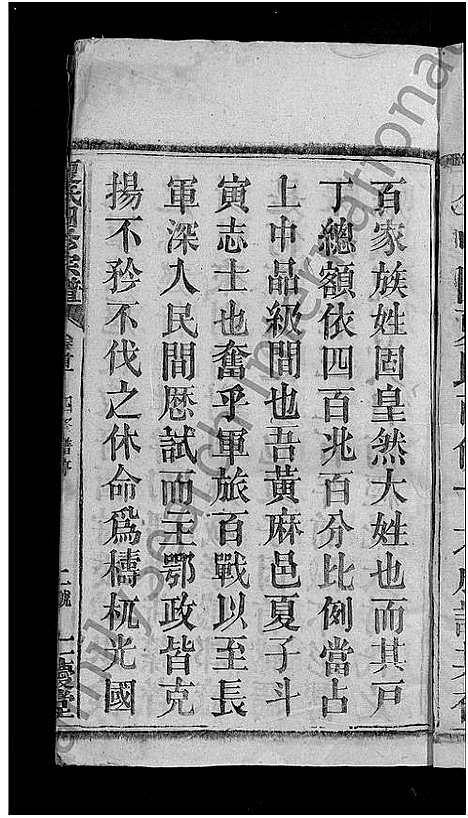 百家族姓固皇然大姓也而其戸
丁總額依四百兆百分比例當占
上中品級間也吾黃麻邑夏子斗
寅志士也奮乎軍旅百戰以至長
軍深入民間歷試而主鄂政皆克
揚不矜不伐之休命爲檮杌光國
夏氏四修宗譜